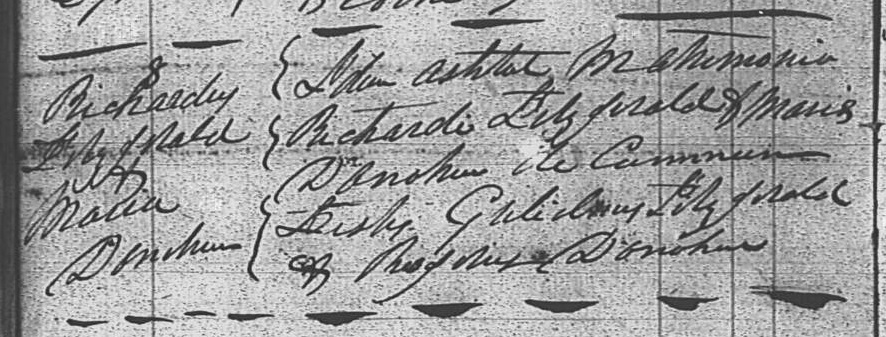 8
Richardus
Fitzgerald
&
Maria
Donohue
Idem astitit Matrimonio
Richardi Fitzgerald & Maria
Donohue de
Testes Gulielmus Fitzgerald
& Donohue